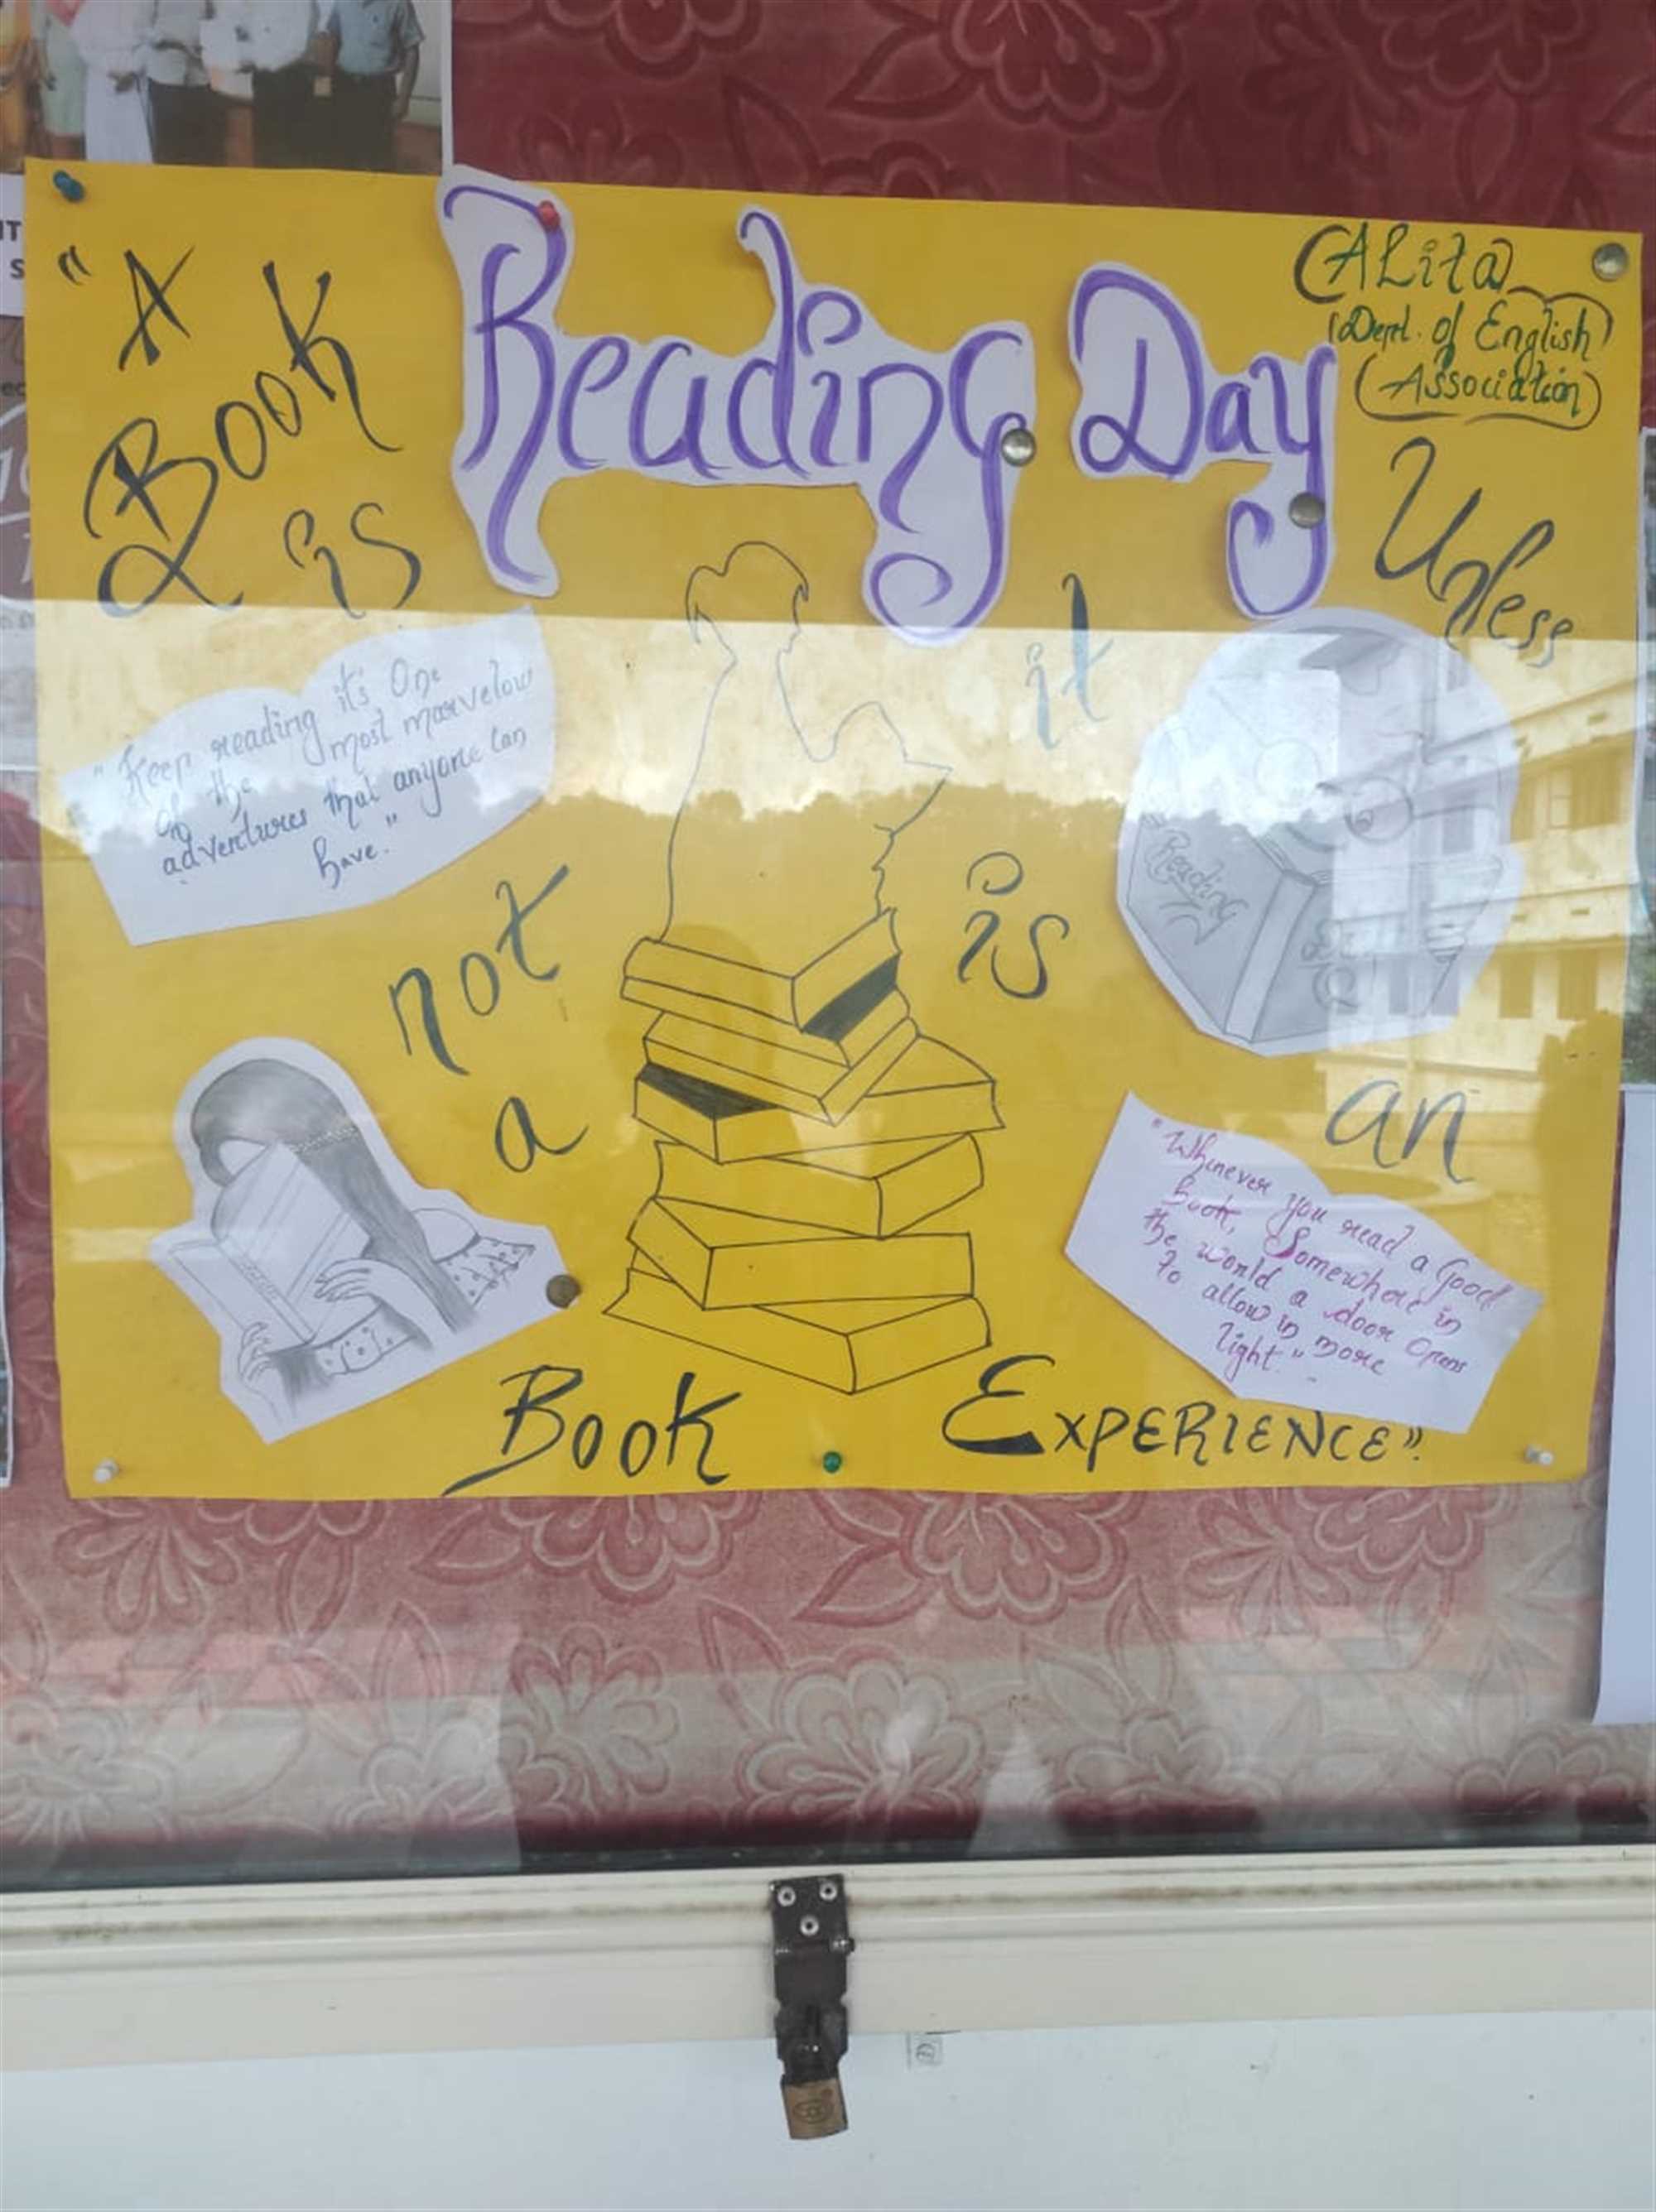 Reading Day
ALita
Dept. of English
Association
"A
Book
is
not
a
Book
Unless
it
is
an
EXPERIENCE".
"Keep reading it's One
of the most marvelous
adventures that anyone can
have."
Reading
"Whinever you read a Good
Book, Somewhore in
the world a door Opens
to allow in more
light".
IT
S